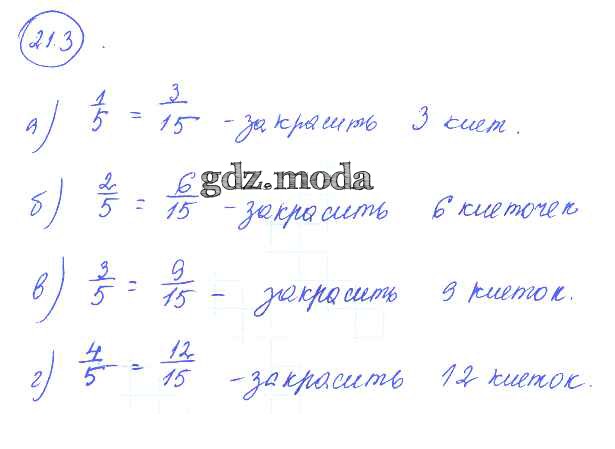 21.3.
а) 1/5 = 3/15 - закрасить 3 клет.
gdz.moda
б) 2/5 = 6/15 - закрасить 6 клеточек
в) 3/5 = 9/15 - закрасить 9 клеток.
г) 4/5 = 12/15 - закрасить 12 клеток.